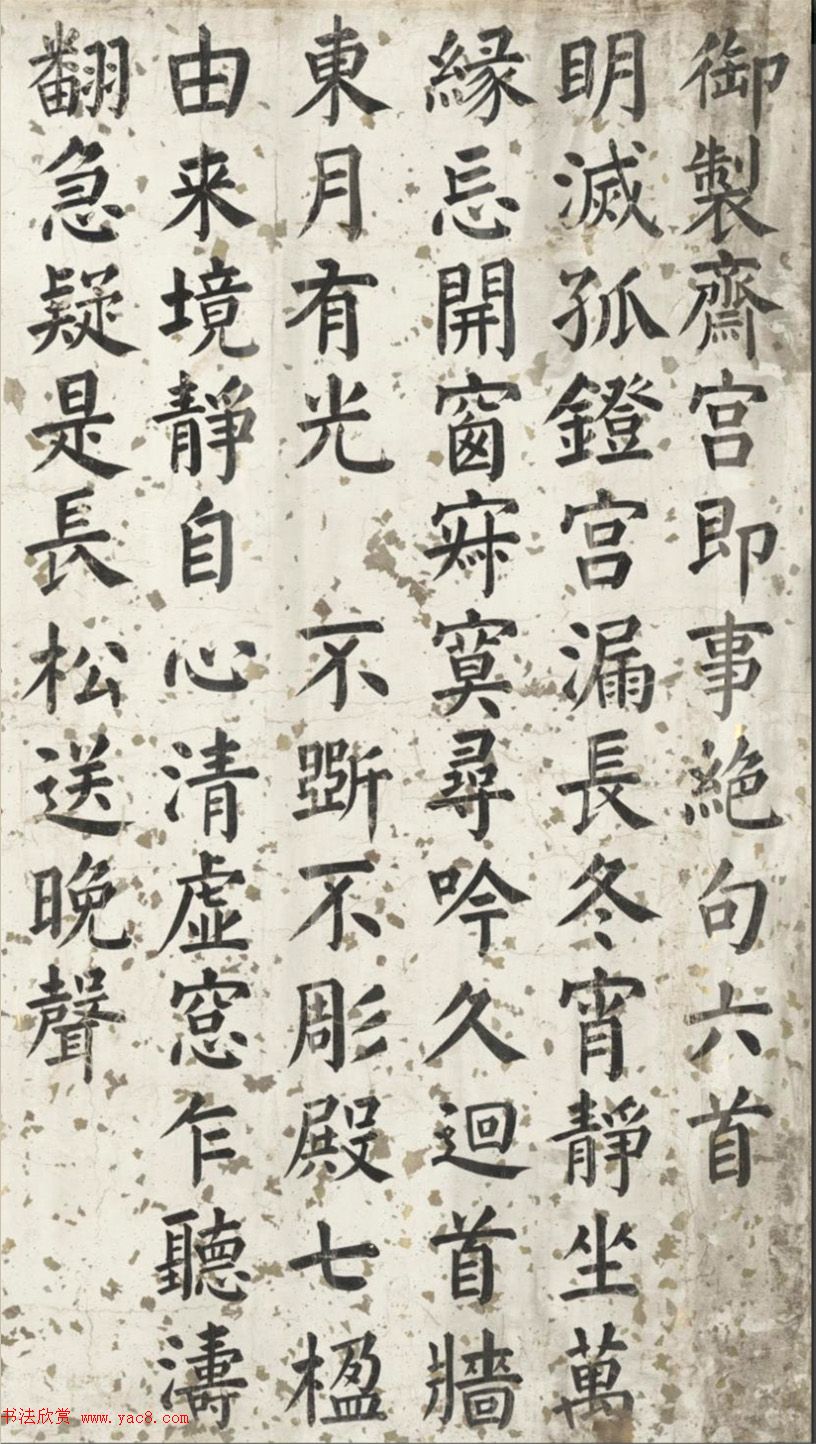 御製齋宫即事絶句六首
明滅孤鐙宫漏長冬宵靜坐萬
緣忘開窗寂寞尋吟久迴首牆
東月有光 不斲不彫殿七楹
由来境靜自心清虚窓乍聽濤
翻急疑是長松送晚聲
书法欣赏 www.yac8.com